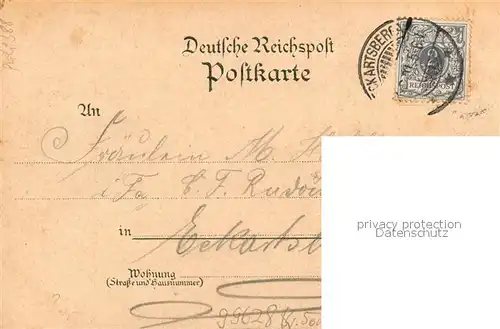 Deutsche Reichspost
Postkarte
ECKARTSBERGA
REICHSPOST
An
Fräulein M. H
i. Fa. C. F. Rudo
in Eckartsb
Wohnung
(Straße und Hausnummer)
99628
privacy protection
Datenschutz